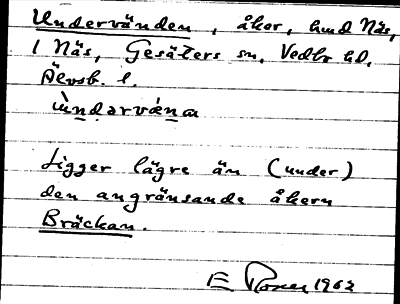 Undervänden, åker, hmd Näs,
1 Näs, Gesäters sn, Vedbo hd,
Älvsb. l.
ùndərvǽna
Ligger lägre än (under)
den angränsande åkern
Bräckan.
E 1962